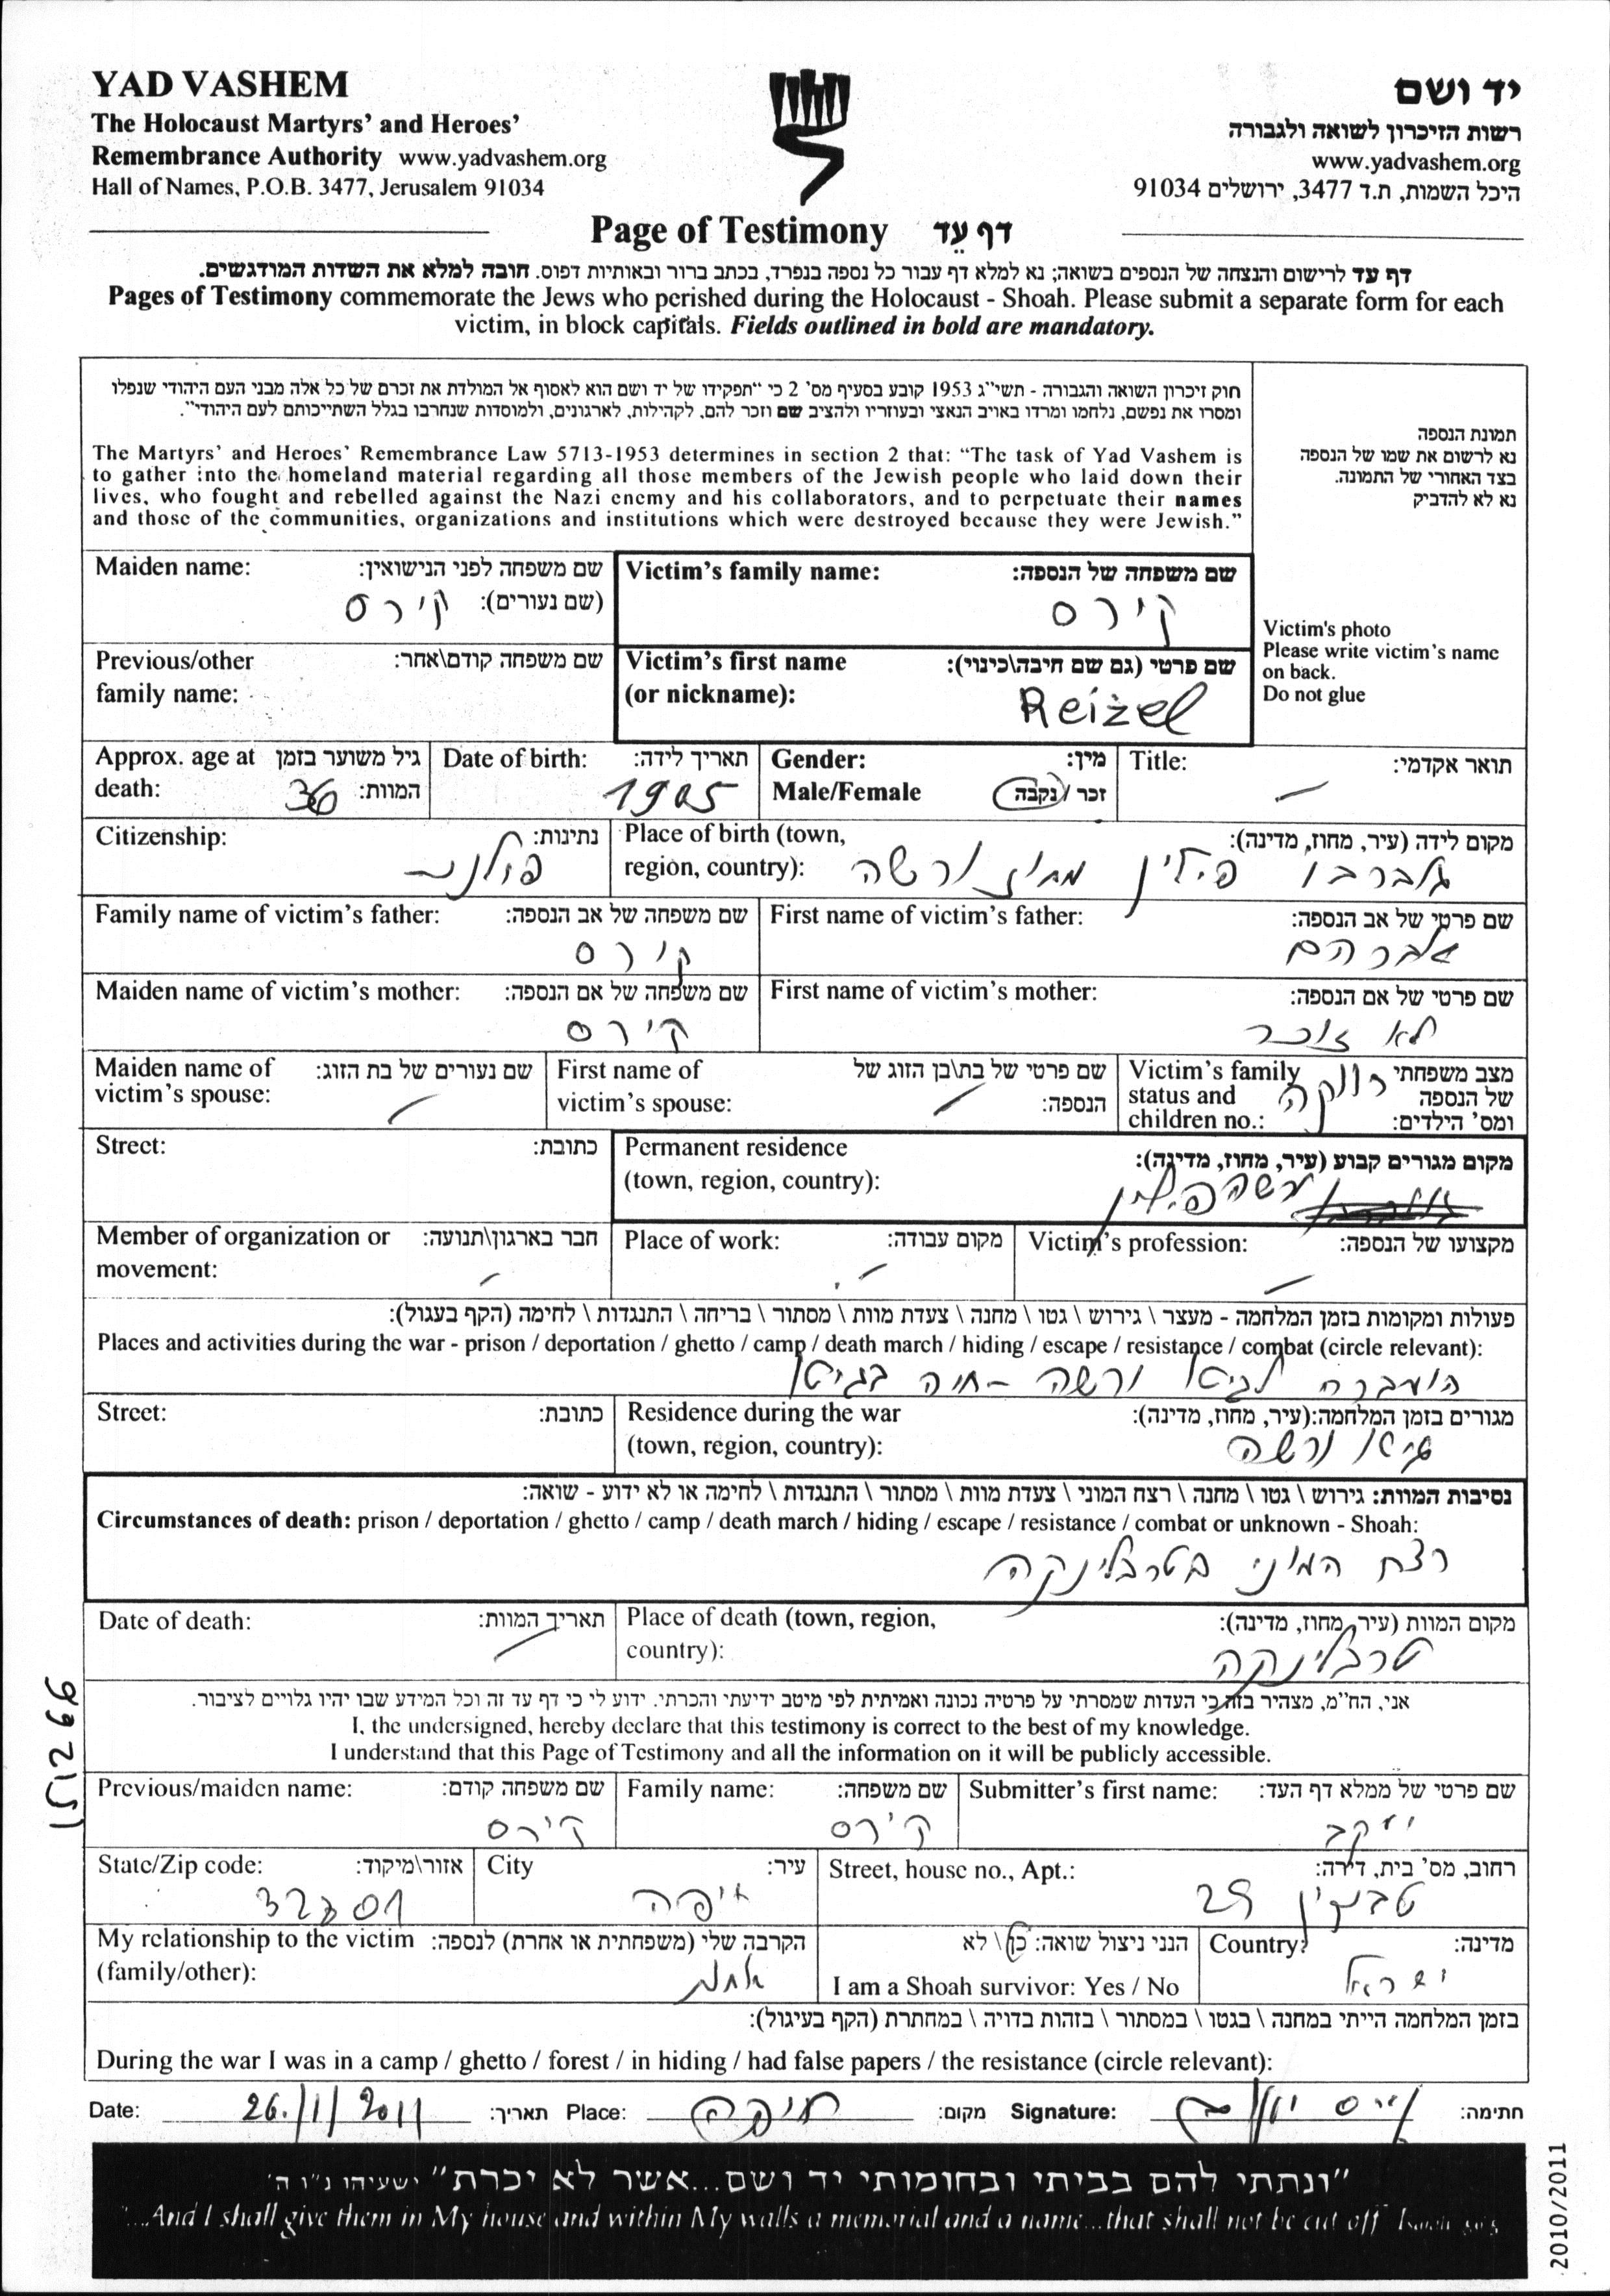 YAD VASHEM
The Holocaust Martyrs' and Heroes'
Remembrance Authority www.yadvashem.org
Hall of Names, P.O.B. 3477, Jerusalem 91034
יד ושם
רשות הזיכרון לשואה ולגבורה
www.yadvashem.org
היכל השמות, ת.ד 3477, ירושלים 91034
Page of Testimony דף עֵד
דף עד לרישום והנצחה של הנספים בשואה; נא למלא דף עבור כל נספה בנפרד, בכתב ברור ובאותיות דפוס. חובה למלא את השדות המודגשים.
Pages of Testimony commemorate the Jews who perished during the Holocaust - Shoah. Please submit a separate form for each
victim, in block capitals. Fields outlined in bold are mandatory.
חוק זיכרון השואה והגבורה - תשי"ג 1953 קובע בסעיף מס' 2 כי "תפקידו של יד ושם הוא לאסוף אל המולדת את זכרם של כל אלה מבני העם היהודי שנפלו
ומסרו את נפשם, נלחמו ומרדו באויב הנאצי ובעוזריו ולהציב שם וזכר להם, לקהילות, לארגונים, ולמוסדות שנחרבו בגלל השתייכותם לעם היהודי".
The Martyrs' and Heroes' Remembrance Law 5713-1953 determines in section 2 that: "The task of Yad Vashem is
to gather into the homeland material regarding all those members of the Jewish people who laid down their
lives, who fought and rebelled against the Nazi enemy and his collaborators, and to perpetuate their names
and those of the communities, organizations and institutions which were destroyed because they were Jewish."
תמונת הנספה
נא לרשום את שמו של הנספה
בצד האחורי של התמונה.
נא לא להדביק
Victim's photo
Please write victim's name
on back.
Do not glue
Maiden name: שם משפחה לפני הנישואין:
(שם נעורים): קירס
Victim's family name: שם משפחה של הנספה:
קירס
Previous/other שם משפחה קודם\אחר:
family name:
Victim's first name שם פרטי (גם שם חיבה\כינוי):
(or nickname): Reizel
Approx. age at גיל משוער בזמן
death: המוות: 36
Date of birth: תאריך לידה:
1905
Gender: מין:
Male/Female זכר / נקבה
Title: תואר אקדמי:
Citizenship: נתינות:
פולנית
Place of birth (town, מקום לידה (עיר, מחוז, מדינה):
region, country): פולין מחוז ורשה
Family name of victim's father: שם משפחה של אב הנספה:
קירס
First name of victim's father: שם פרטי של אב הנספה:
אברהם
Maiden name of victim's mother: שם משפחה של אם הנספה:
קירס
First name of victim's mother: שם פרטי של אם הנספה:
לא זוכר
Maiden name of שם נעורים של בת הזוג:
victim's spouse:
First name of שם פרטי של בת\בן הזוג של
victim's spouse: הנספה:
Victim's family מצב משפחתי
status and של הנספה רווקה
children no.: ומס' הילדים:
Street: כתובת:
Permanent residence מקום מגורים קבוע (עיר, מחוז, מדינה):
(town, region, country): ורשה פולין
Member of organization or חבר בארגון\תנועה:
movement:
Place of work: מקום עבודה:
Victim's profession: מקצועו של הנספה:
פעולות ומקומות בזמן המלחמה - מעצר \ גירוש \ גטו \ מחנה \ צעדת מוות \ מסתור \ בריחה \ התנגדות \ לחימה (הקף בעגול):
Places and activities during the war - prison / deportation / ghetto / camp / death march / hiding / escape / resistance / combat (circle relevant):
הועברה לגיטו ורשה - חיה בגיטו
Street: כתובת:
Residence during the war מגורים בזמן המלחמה:(עיר, מחוז, מדינה):
(town, region, country): גיטו ורשה
נסיבות המוות: גירוש \ גטו \ מחנה \ רצח המוני \ צעדת מוות \ מסתור \ התנגדות \ לחימה או לא ידוע - שואה:
Circumstances of death: prison / deportation / ghetto / camp / death march / hiding / escape / resistance / combat or unknown - Shoah:
רצח המוני בטרבלינקה
Date of death: תאריך המוות:
Place of death (town, region, מקום המוות (עיר, מחוז, מדינה):
country): טרבלינקה
אני, הח"מ, מצהיר בזה כי העדות שמסרתי על פרטיה נכונה ואמיתית לפי מיטב ידיעתי והכרתי. ידוע לי כי דף עד זה וכל המידע שבו יהיו גלויים לציבור.
I, the undersigned, hereby declare that this testimony is correct to the best of my knowledge.
I understand that this Page of Testimony and all the information on it will be publicly accessible.
Previous/maiden name: שם משפחה קודם:
קירס
Family name: שם משפחה:
קירס
Submitter's first name: שם פרטי של ממלא דף העד:
יעקב
State/Zip code: אזור\מיקוד:
City עיר:
חיפה
Street, house no., Apt.: רחוב, מס' בית, דירה:
טבנקין 25
My relationship to the victim הקרבה שלי (משפחתית או אחרת) לנספה:
(family/other):
הנני ניצול שואה: כן \ לא
I am a Shoah survivor: Yes / No
Country: מדינה:
ישראל
בזמן המלחמה הייתי במחנה \ בגטו \ במסתור \ בזהות בדויה \ במחתרת (הקף בעיגול):
During the war I was in a camp / ghetto / forest / in hiding / had false papers / the resistance (circle relevant):
Date: 26/1/2011 תאריך: Place: חיפה מקום: Signature: חתימה:
"ונתתי להם בביתי ובחומותי יד ושם...אשר לא יכרת" ישעיהו נ"ו ה'
"...And I shall give them in My house and within My walls a memorial and a name...that shall not be cut off" Isaiah 56:5
151266
2010/2011